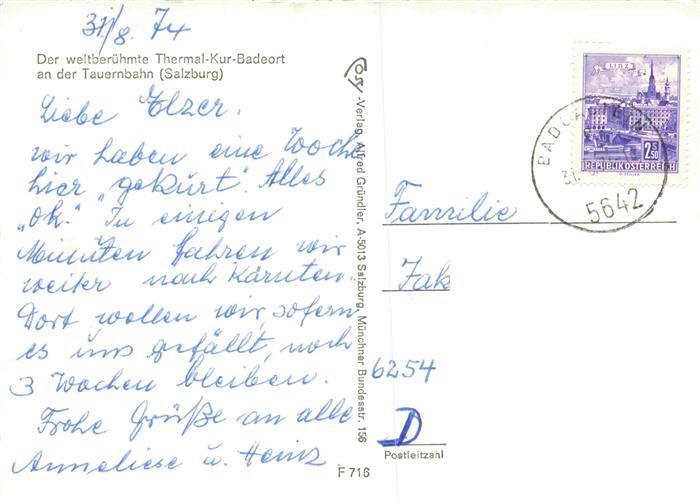 31/8. 74
Der weltberühmte Thermal-Kur-Badeort
an der Tauernbahn (Salzburg)
Liebe Elzer.
wir haben eine Woche
hier „gekürt". Alles
„ok." In einigen
Minuten fahren wir
weiter nach Kärnten.
Dort wollen wir, sofern
es uns gefällt, noch
3 Wochen bleiben.
Frohe Grüße an alle
Anneliese u. Heinz.
F 716
-Verlag Alfred Gründler, A-5013 Salzburg, Münchner Bundesstr. 156
LINZ
2 S 50
REPUBLIK ÖSTERREICH
31.
5642
Familie
Jak
6254
D
Postleitzahl